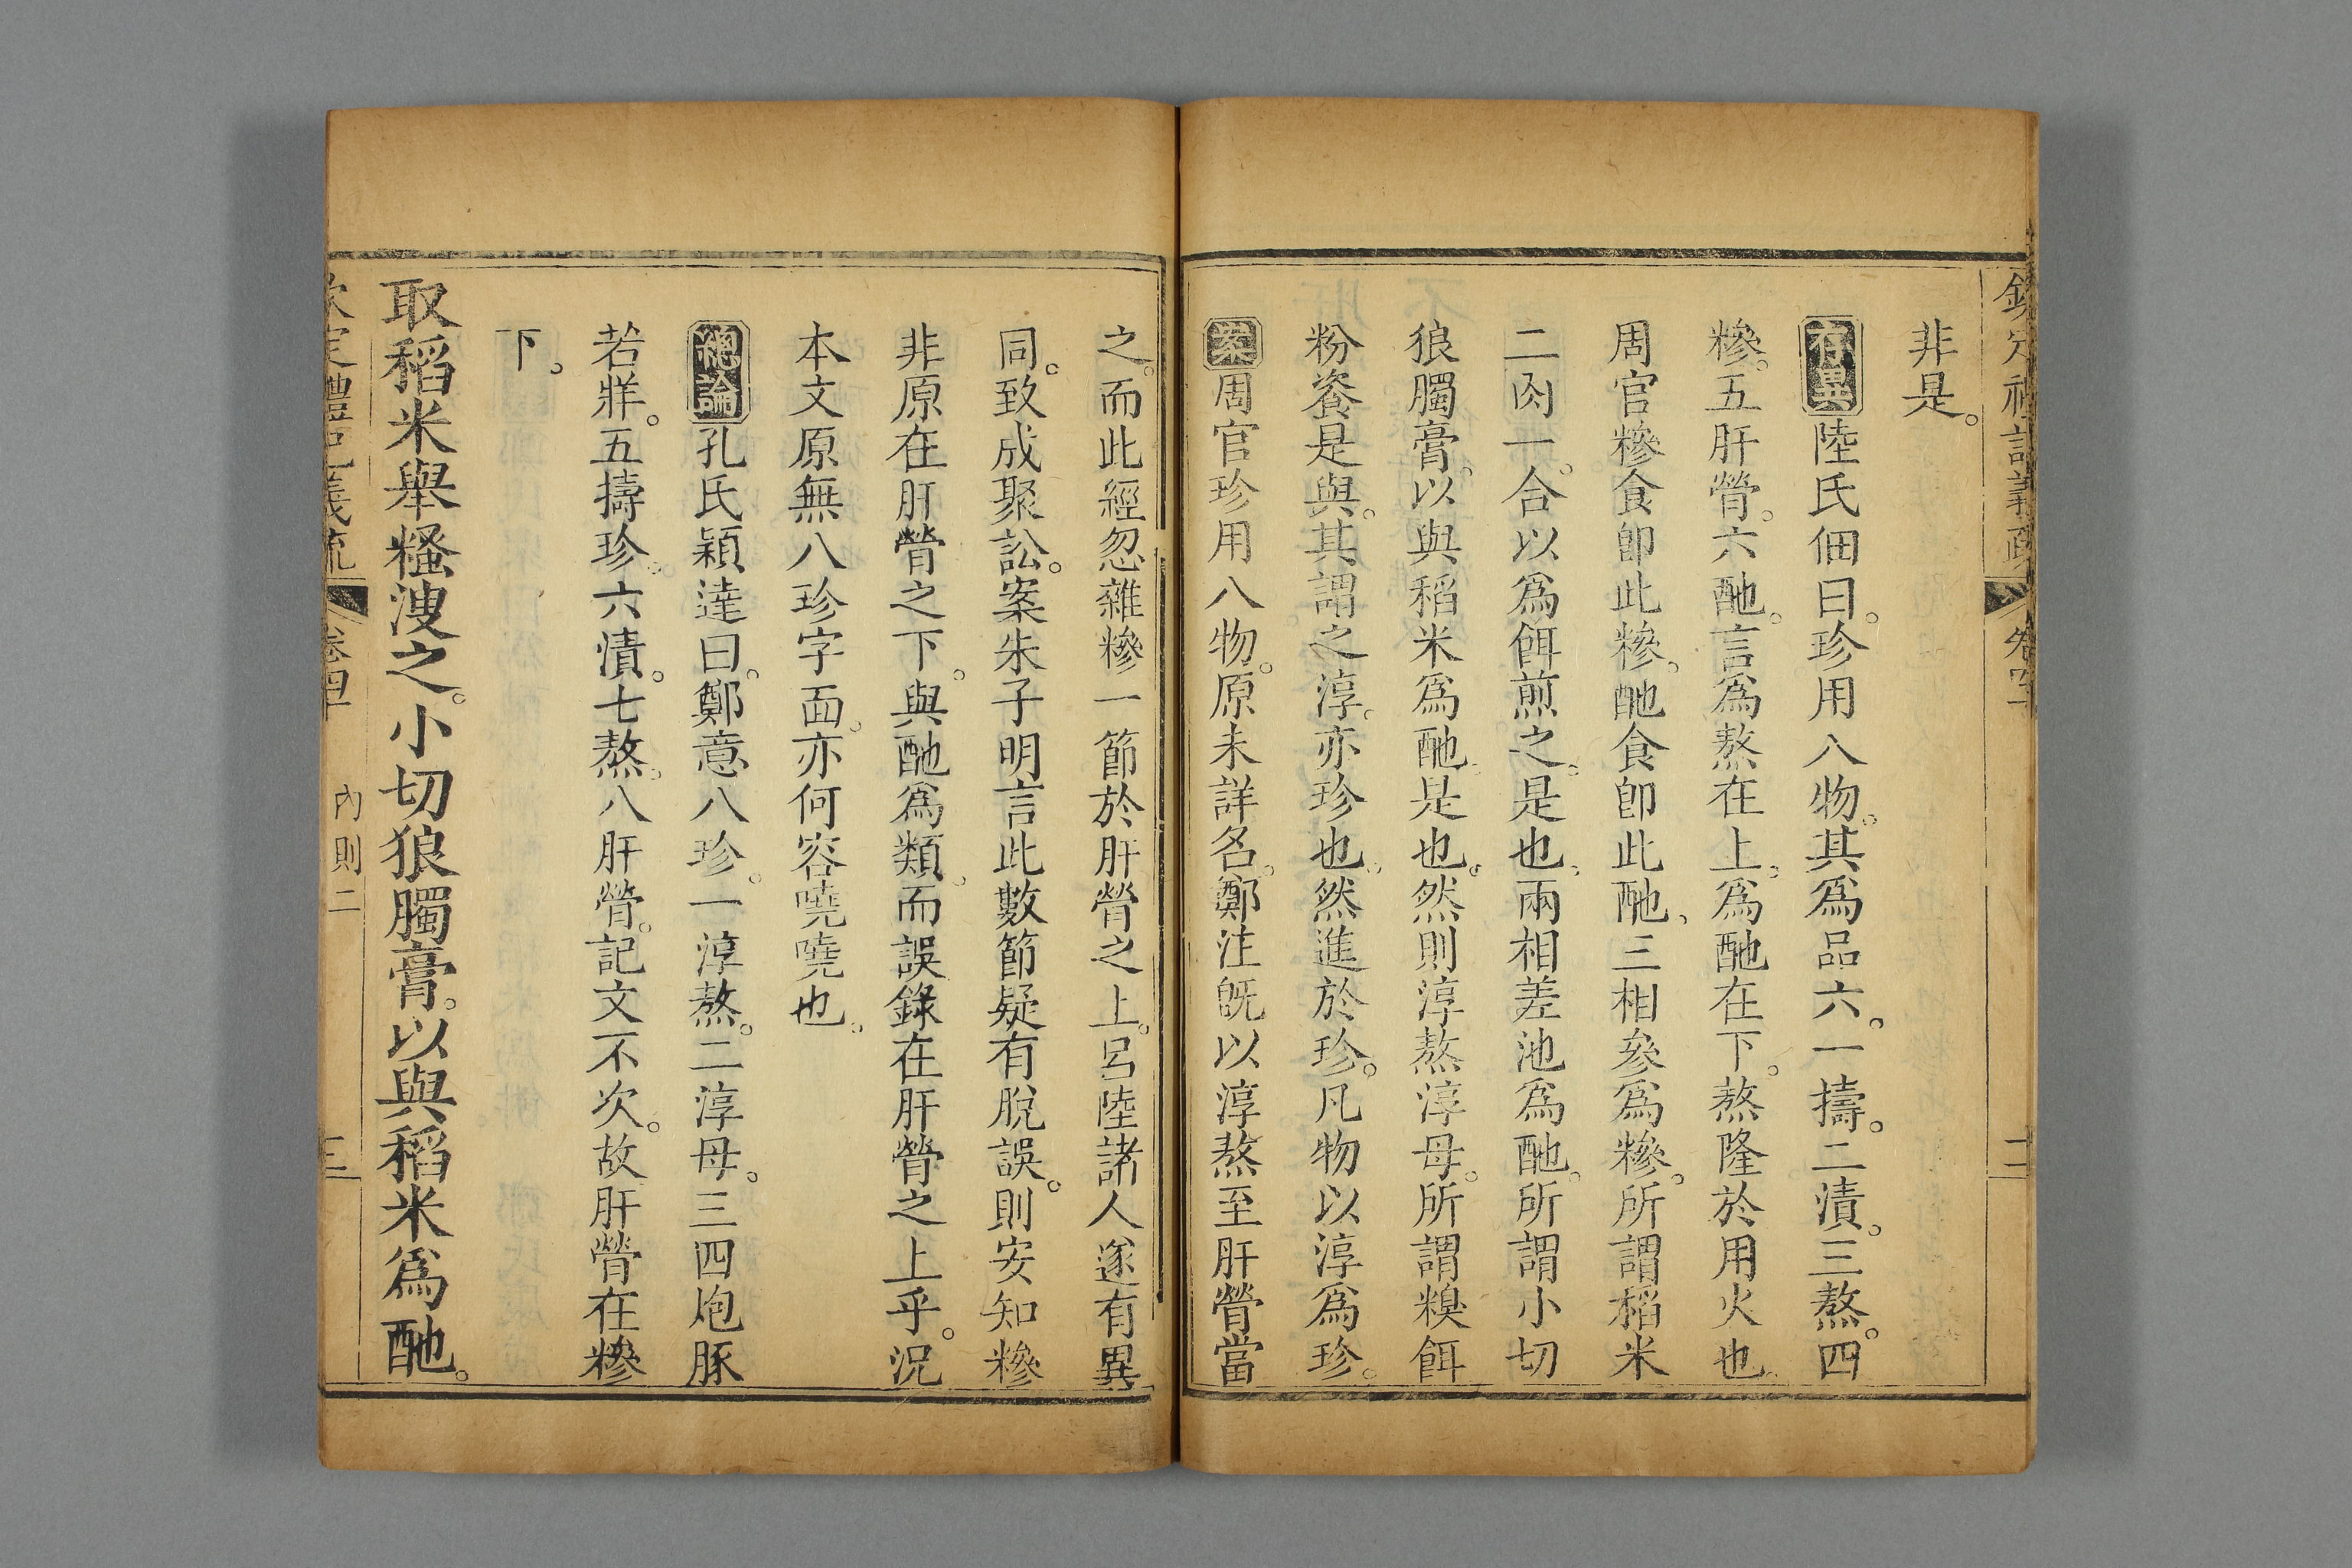 欽定禮記義疏 卷四十 二
非是。
存異陸氏佃曰。珍用八物。其爲品六。一擣。二漬。三熬。四
糝。五肝膋。六酏。言爲熬在上。爲酏在下。熬隆於用火也。
周官糝食卽此糝。酏食卽此酏。三相參爲糝。所謂稻米
二肉一。合以爲餌煎之。是也。兩相差池爲酏。所謂小切
狼臅膏。以與稻米爲酏。是也。然則淳熬淳母。所謂糗餌
粉餈是與。其謂之淳。亦珍也。然進於珍。凡物以淳爲珍。
案周官珍用八物。原未詳名。鄭注旣以淳熬至肝膋當
之。而此經忽雜糝一節於肝膋之上。呂陸諸人遂有異
同。致成聚訟。案朱子明言此數節疑有脫誤。則安知糝
非原在肝膋之下。與酏爲類。而誤錄在肝膋之上乎。況
本文原無八珍字面。亦何容嘵嘵也。
總論孔氏穎達曰。鄭意八珍。一淳熬。二淳母。三四炮豚
若牂。五擣珍。六漬。七熬。八肝膋。記文不次。故肝膋在糝
下。
取稻米舉糔溲之。小切狼臅膏。以與稻米爲酏。
欽定禮記義疏 卷四十 內則二 三